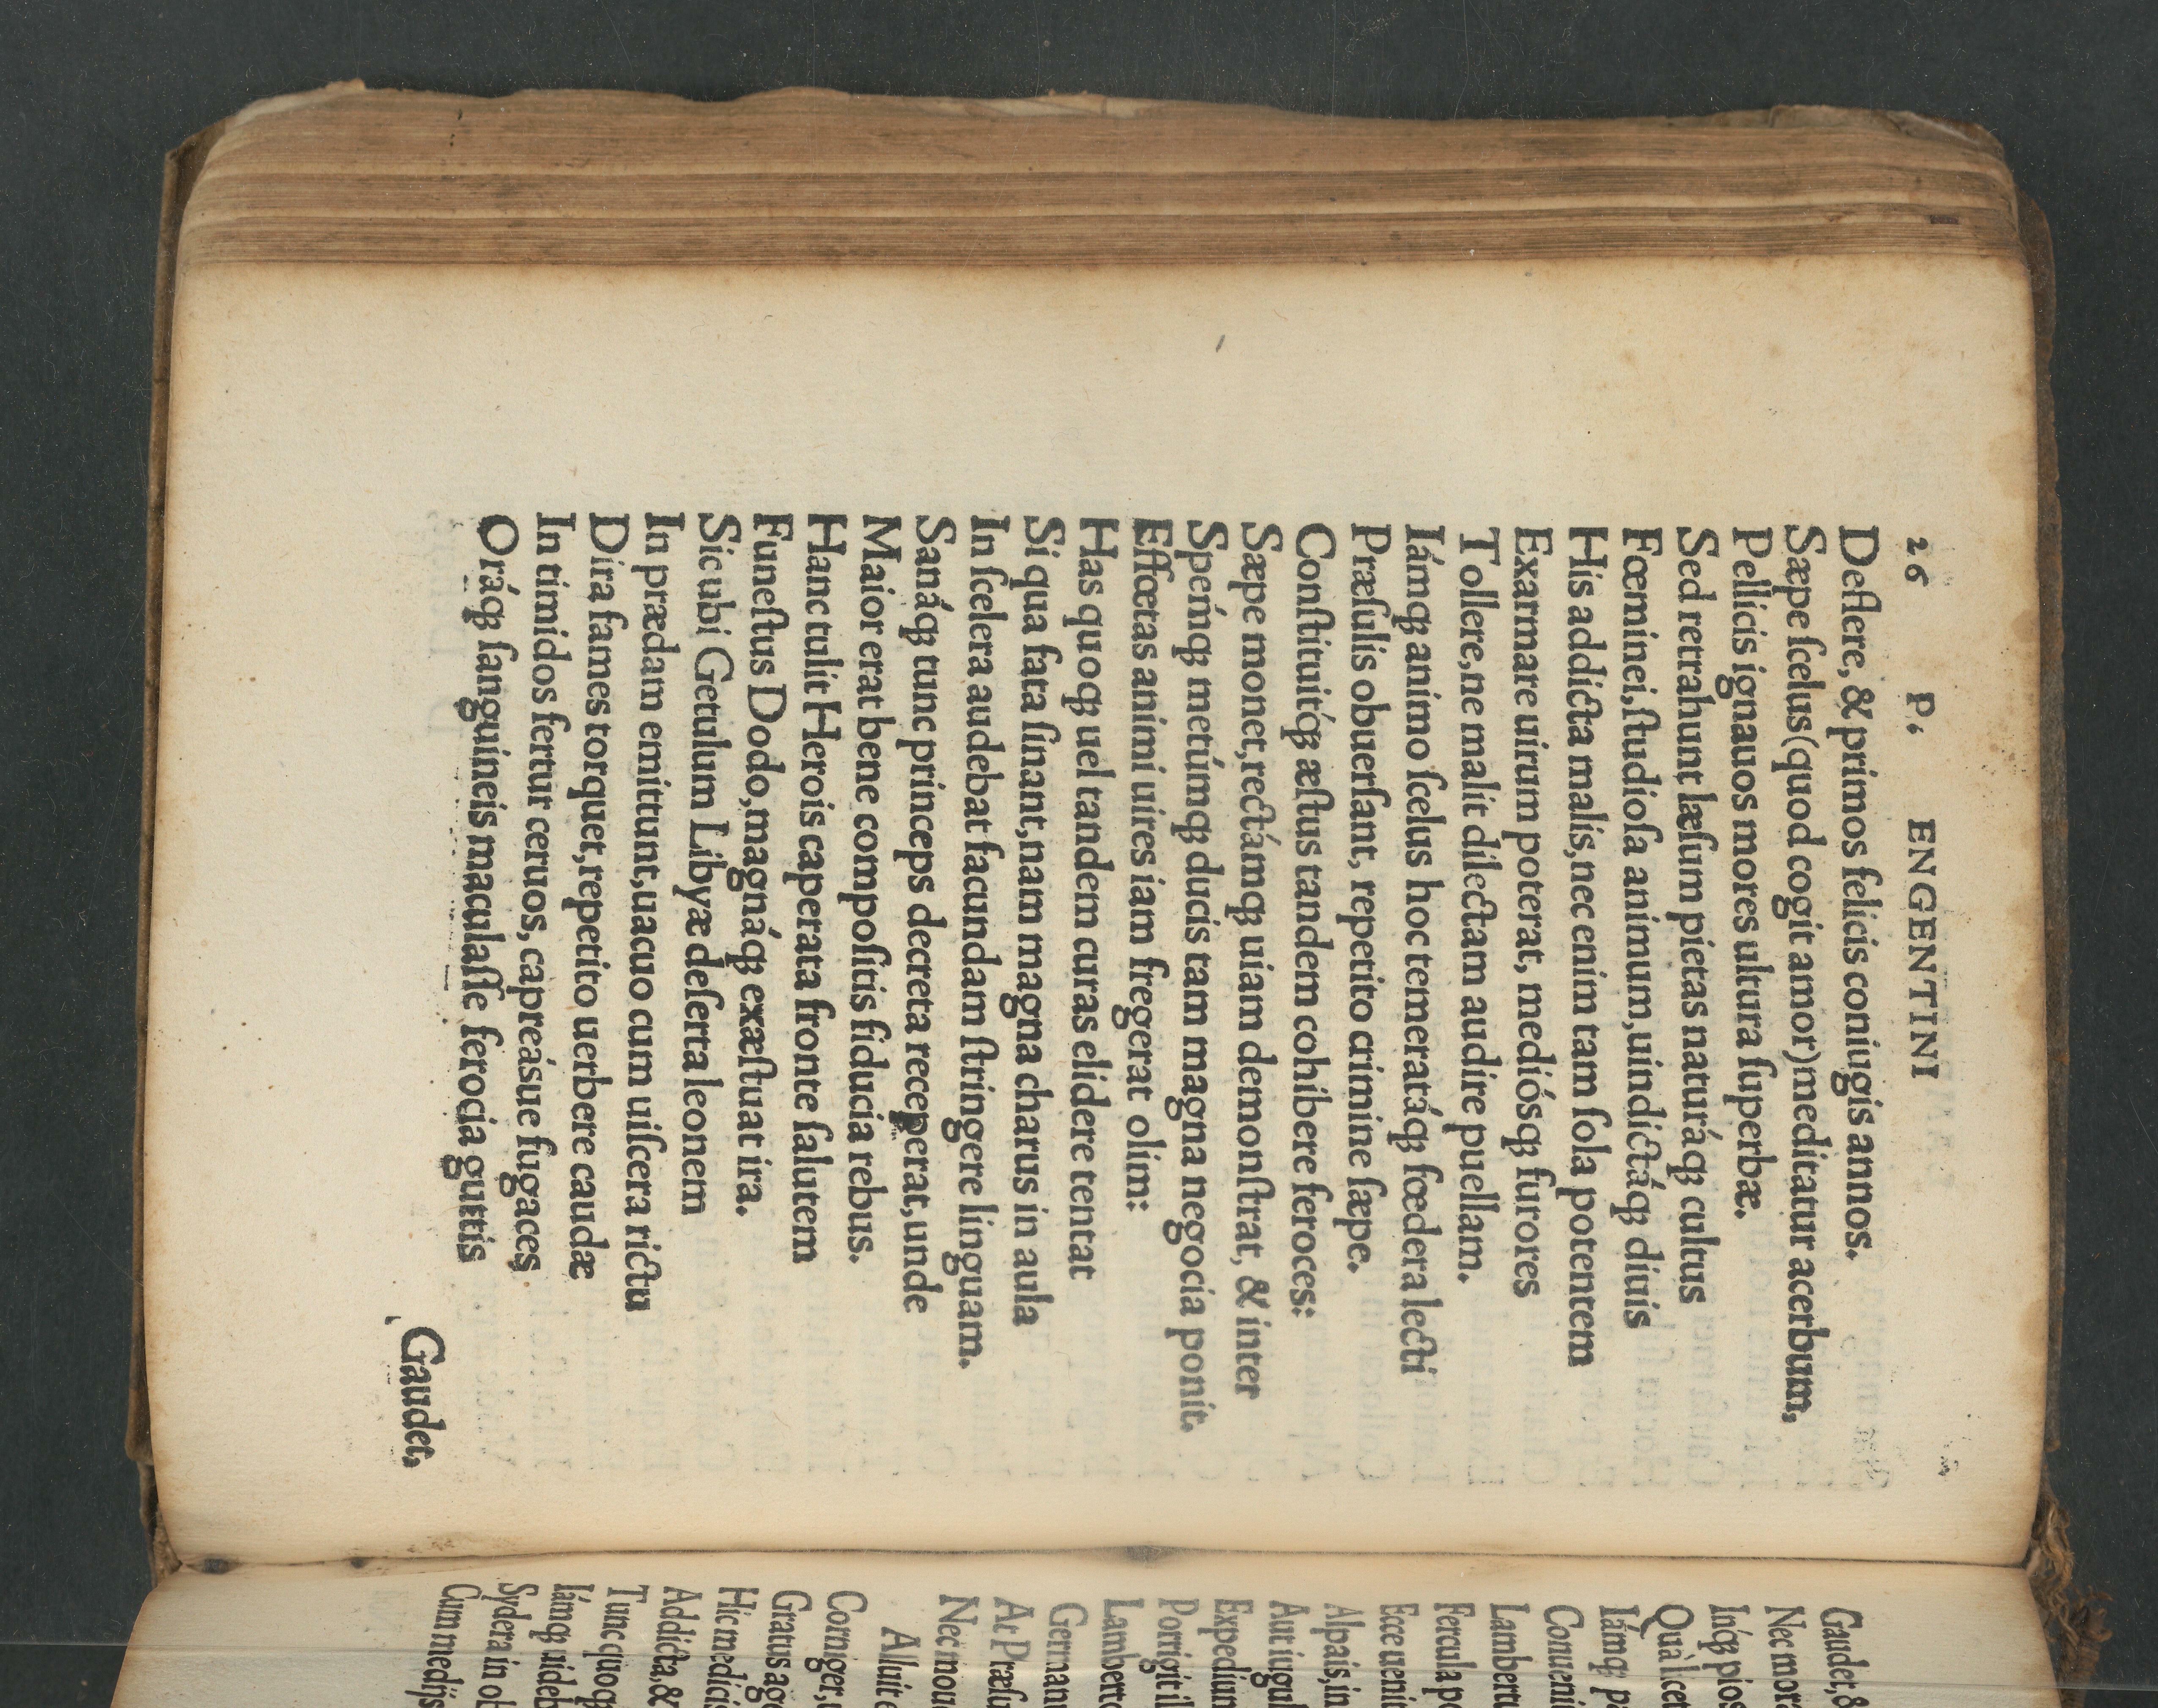 26 P. ENGENTINI
Deflere, & primos felicis coniugis annos.
Sæpe ſcelus (quod cogit amor) meditatur acerbum,
Pellicis ignauos mores ultura ſuperbæ.
Sed retrahunt læſum pietas naturáqꝫ cultus
Fœminei, ſtudioſa animum, uindictáqꝫ diuis
His addicta malis, nec enim tam ſola potentem
Exarmare uirum poterat, mediósqꝫ furores
Tollere, ne malit dilectam audire puellam.
Iámqꝫ animo ſcelus hoc temeratáqꝫ fœdera lecti
Præſulis obuerſant, repetito crimine ſæpe.
Conſtituitqꝫ́ æſtus tandem cohibere feroces:
Sæpe monet, rectámqꝫ uiam demonſtrat, & inter
Speḿqꝫ metúmqꝫ ducis tam magna negocia ponit.
Effœtas animi uires iam fregerat olim:
Has quoqꝫ uel tandem curas elidere tentat
Si qua fata ſinant, nam magna charus in aula
In ſcelera audebat facundam ſtringere linguam.
Sanáqꝫ tunc princeps decreta receperat, unde
Maior erat bene compoſitis fiducia rebus.
Hanc tulit Herois caperata fronte ſalutem
Funeſtus Dodo, magnáqꝫ exæſtuat ira.
Sic ubi Getulum Libyæ deſerta leonem
In prædam emittunt, uacuo cum uiſcera rictu
Dira fames torquet, repetito uerbere caudæ
In timidos fertur ceruos, capreásue fugaces
Oráqꝫ ſanguineis maculaſſe ferocia guttis
Gaudet,
Gaudet, &
Nec mor
Inqꝫ́ pios
Quà licet
Iámqꝫ p
Conueni
Lambertu
Fercula p
Ecce ueni
Alpais, in
Aut iugul
Expediun
Porrigit il
Lamberto
German
At Præſu
Nec mou
Alluit
Corniger,
Gratus ag
Hic medici
Addicta, &
Tunc quoqꝫ
Iámqꝫ uideb
Sydera in o
Cum medijs